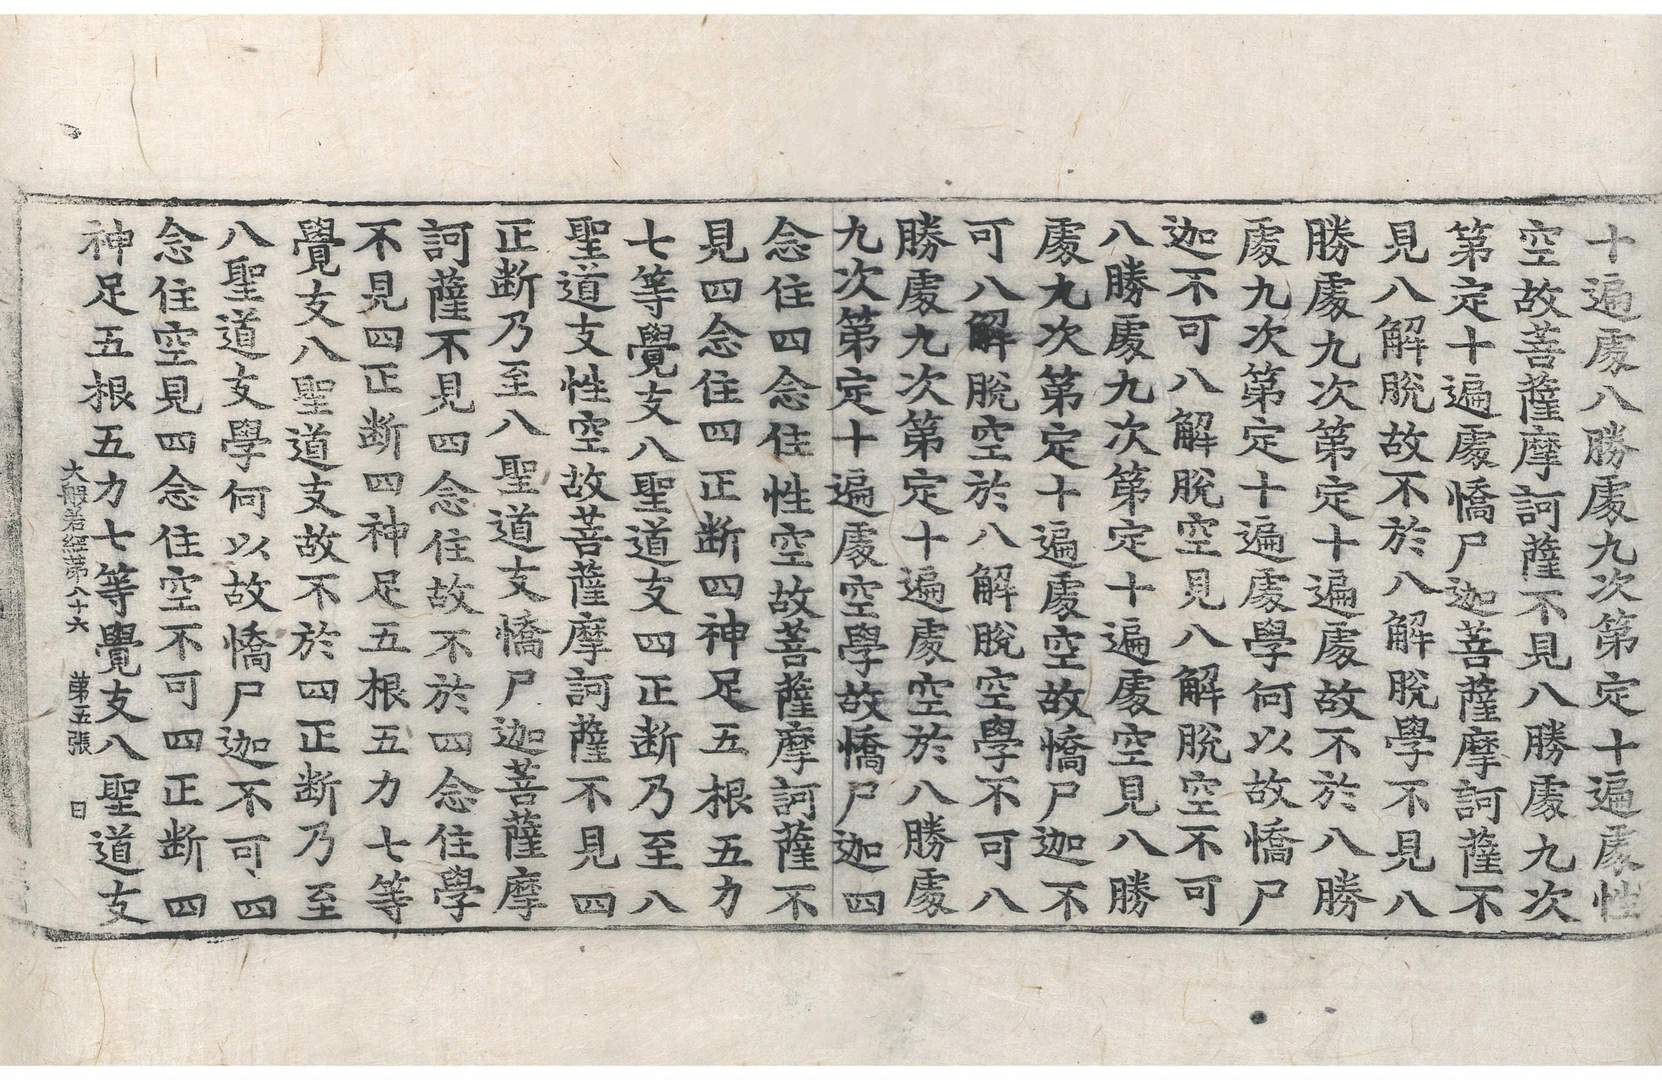 十遍處八勝處九次第定十遍處性
空故菩薩摩訶薩不見八勝處九次
第定十遍處憍尸迦菩薩摩訶薩不
見八解脫故不於八解脫學不見八
勝處九次第定十遍處故不於八勝
處九次第定十遍處學何以故憍尸
迦不可八解脫空見八解脫空不可
八勝處九次第定十遍處空見八勝
處九次第定十遍處空故憍尸迦不
可八解脫空於八解脫空學不可八
勝處九次第定十遍處空於八勝處
九次第定十遍處空學故憍尸迦四
念住四念住性空故菩薩摩訶薩不
見四念住四正断四神足五根五力
七等覺支八聖道支四正断乃至八
聖道支性空故菩薩摩訶薩不見四
正断乃至八聖道支憍尸迦菩薩摩
訶薩不見四念住故不於四念住學
不見四正断四神足五根五力七等
覺支八聖道支故不於四正断乃至
八聖道支學何以故憍尸迦不可四
念住空見四念住空不可四正断四
神足五根五力七等覺支八聖道支
大般若經第八十六 第五張 日